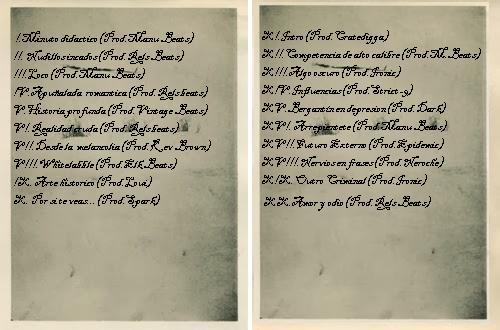 I.Minuto didactico (Prod.Manu Beats)
II. Nudillos incados (Prod.Rels Beats)
III.Loco (Prod.Manu Beats)
IV.Apuñalada romantica (Prod.Rels beats)
V.Historia profunda (Prod.Vintage Beats)
VI.Realidad cruda (Prod.Rels beats)
VII.Desde la melanolia (Prod.K_ev Brown)
VIII.Whitelabble (Prod.Elk Beats)
IX. Arte historico (Prod.Lowx)
X. Por si te veas... (Prod.Spark)
X.I.Intro (Prod.Cratedigga)
X.II.Competencia de alto calibre (Prod.M.Beats)
X.III.Algo oscuro (Prod.Ironic)
X.IV.Influencias (Prod.Strict-g)
X.V.Bergantin en depresion (Prod.Dark)
X.VI.Arrepientete (Prod.Manu Beats)
X.VII.Futuro Externo (Prod.Epidemic)
X.VIII.Nervios en frases (Prod.Neroche)
X.IX. Outro Criminal (Prod.Ironic)
X.X.Amor y odio (Prod.Rels Beats)